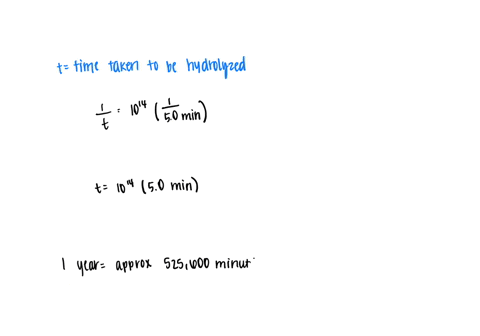 t= time taken to be hydrolyzed
1/t = 10¹⁴ (1/5.0 min)
t= 10¹⁴ (5.0 min)
1 year= approx 525,600 minut